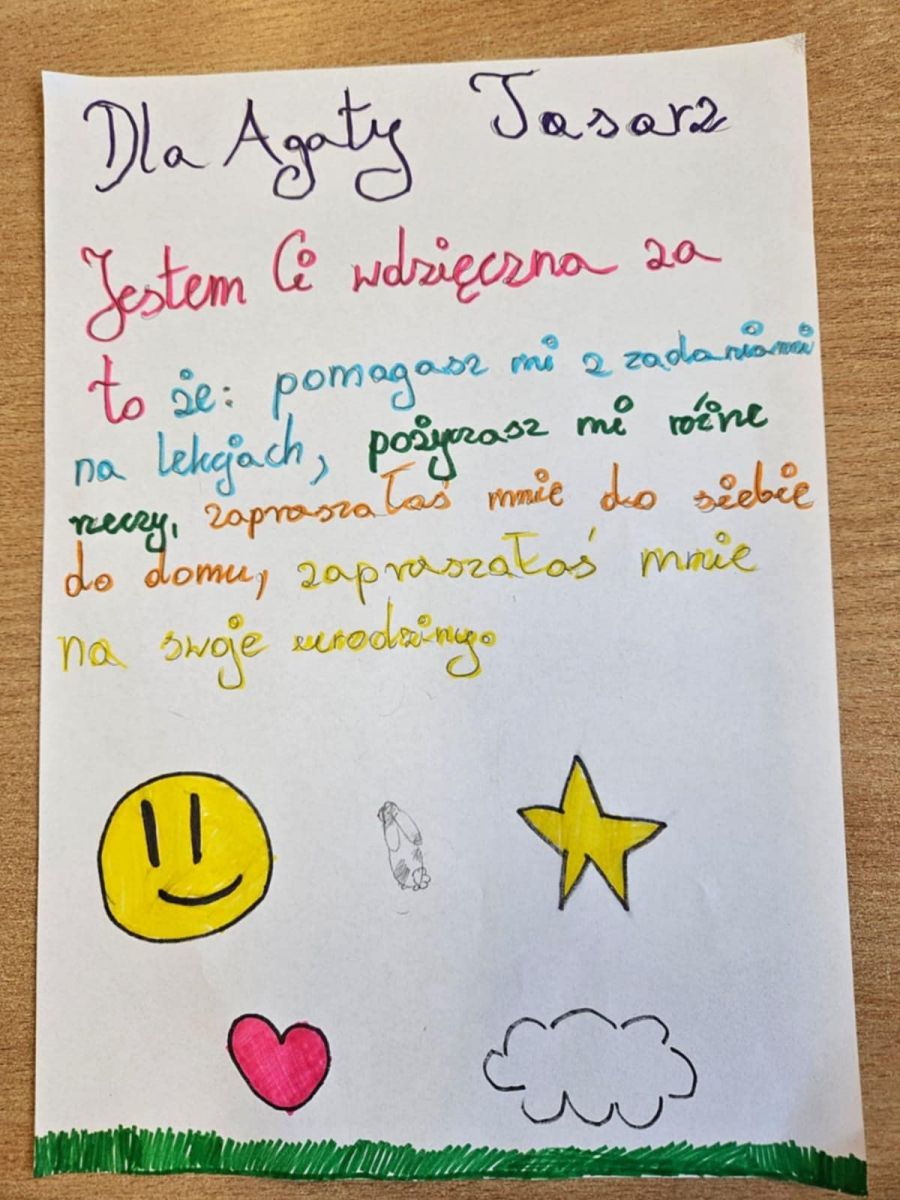 Dla Agaty Tasarz
Jestem Ci wdzięczna za
to że: pomagasz mi z zadaniami
na lekcjach, pożyczasz mi różne
rzeczy, zapraszałaś mnie do siebie
do domu, zapraszałaś mnie
na swoje urodziny.